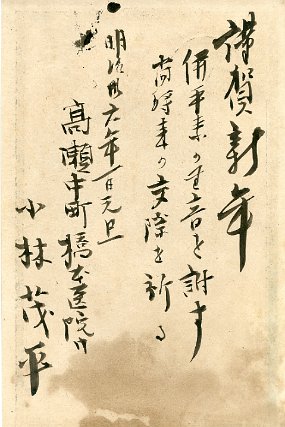 謹賀新年
併平素の音を謝す
尚将来の交際を祈る
明治卅六年一月元旦
高瀬中町橋本医院内
小林茂平